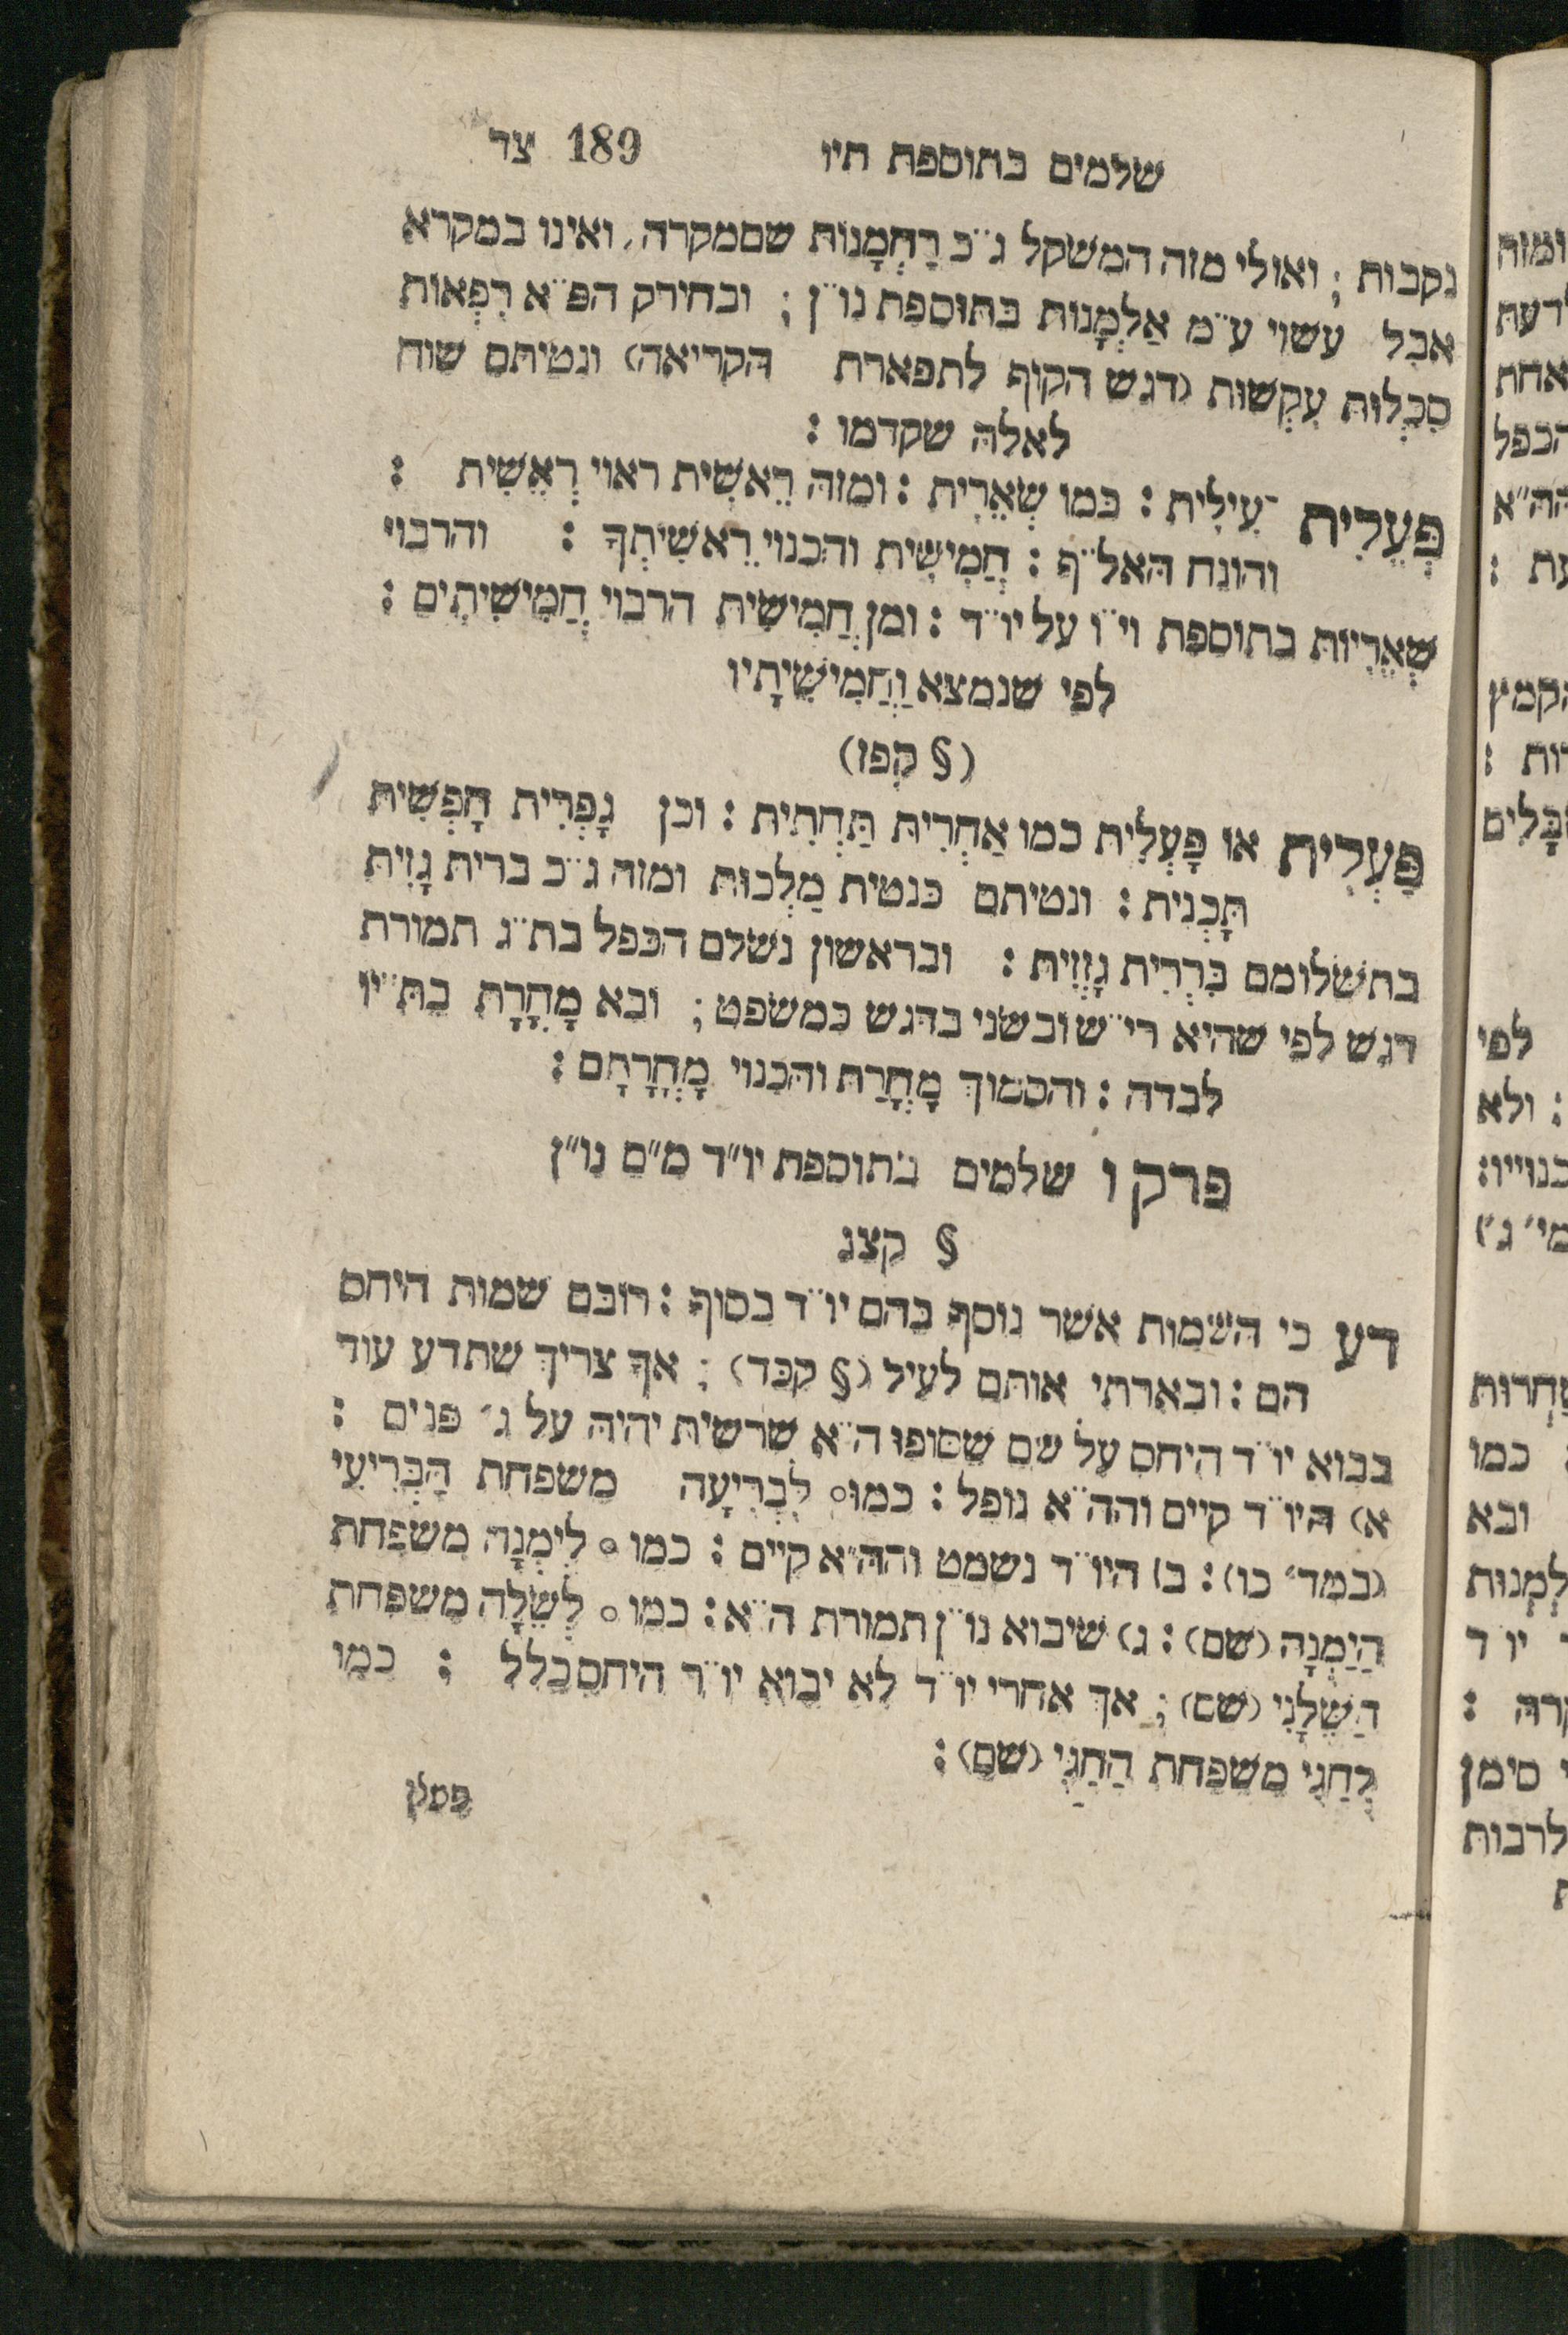 שלמים בתוספת תיו 189 צד
נקבות ; ואולי מזה המשקל ג״כ רַחְמָנוּת שםמקרה, ואינו במקרא
אבל עשוי ע״מ אַלְמָנוּת בתוספת נו״ן ; ובחירק הפ״א רִפְאוּת
סִכְלוּת עִקְשׁוּת (דגש הקוף לתפארת הקריאה) ונטיתם שוה
לאלה שקדמו :
פְּעֵלִית ־עִילִית : כמו שְׁאֵרִית : ומזה רֵאשִׁית ראוי רְאֵשִׁית :
והונח האל״ף : חֲמִישִׁית והכנוי רֵאשִׁיתְךָ : והרבוי
שְׁאֵרִיּוֹת בתוספת וי״ו על יו״ד : ומן חֲמִישִׁית הרבוי חֲמִישִׁיתִים :
לפי שנמצא וַחֲמִישִׁיתָיו
(§ קפז)
פַּעְלִית או פָּעְלִית כמו אַחְרִית תַּחְתִית : וכן גָפְרִית חָפְשִׁית
תָּכְנִית : ונטיתם כנטית מַלְכוּת ומזה ג״כ ברית גָזִית
בתשלומם בִּרְרִית גָזְזִית : ובראשון נשלם הכפל בת״ג תמורת
דגש לפי שהיא רי״ש ובשני בדגש כמשפט ; ובא מָחֳרָת בת״יו
לבדה : והסמוך מָחֳרַת והכנוי מָחֳרָתָם :
פרק ו שלמים בתוספת יו״ד מ״ם נו״ן
§ קצג
דע כי השמות אשר נוסף בהם יו״ד בסוף : רובם שמות היחס
הם : ובארתי אותם לעיל (§ קכד) ; אך צריך שתדע עוד
בבוא יו״ד היחס על שם שסופו ה״א שרשית יהיה על ג׳ פנים :
א) היו״ד קיים והה״א נופל : כמו○ לִבְרִיעָה משפחת הַבְּרִיעִי
(במד׳ כו) : ב) היו״ד נשמט והה״א קיים : כמו ○ לְיִמְנָה משפחת
הַיִּמְנָה (שם) : ג) שיבוא נו״ן תמורת ה״א : כמו ○ לְשֵׁלָה משפחת
הַשֵּׁלָנִי (שם) ; אך אחרי יו״ד לא יבוא יו״ד היחסכלל : כמו
לְחַגִּי משפחת הַחַגִּי (שם) :